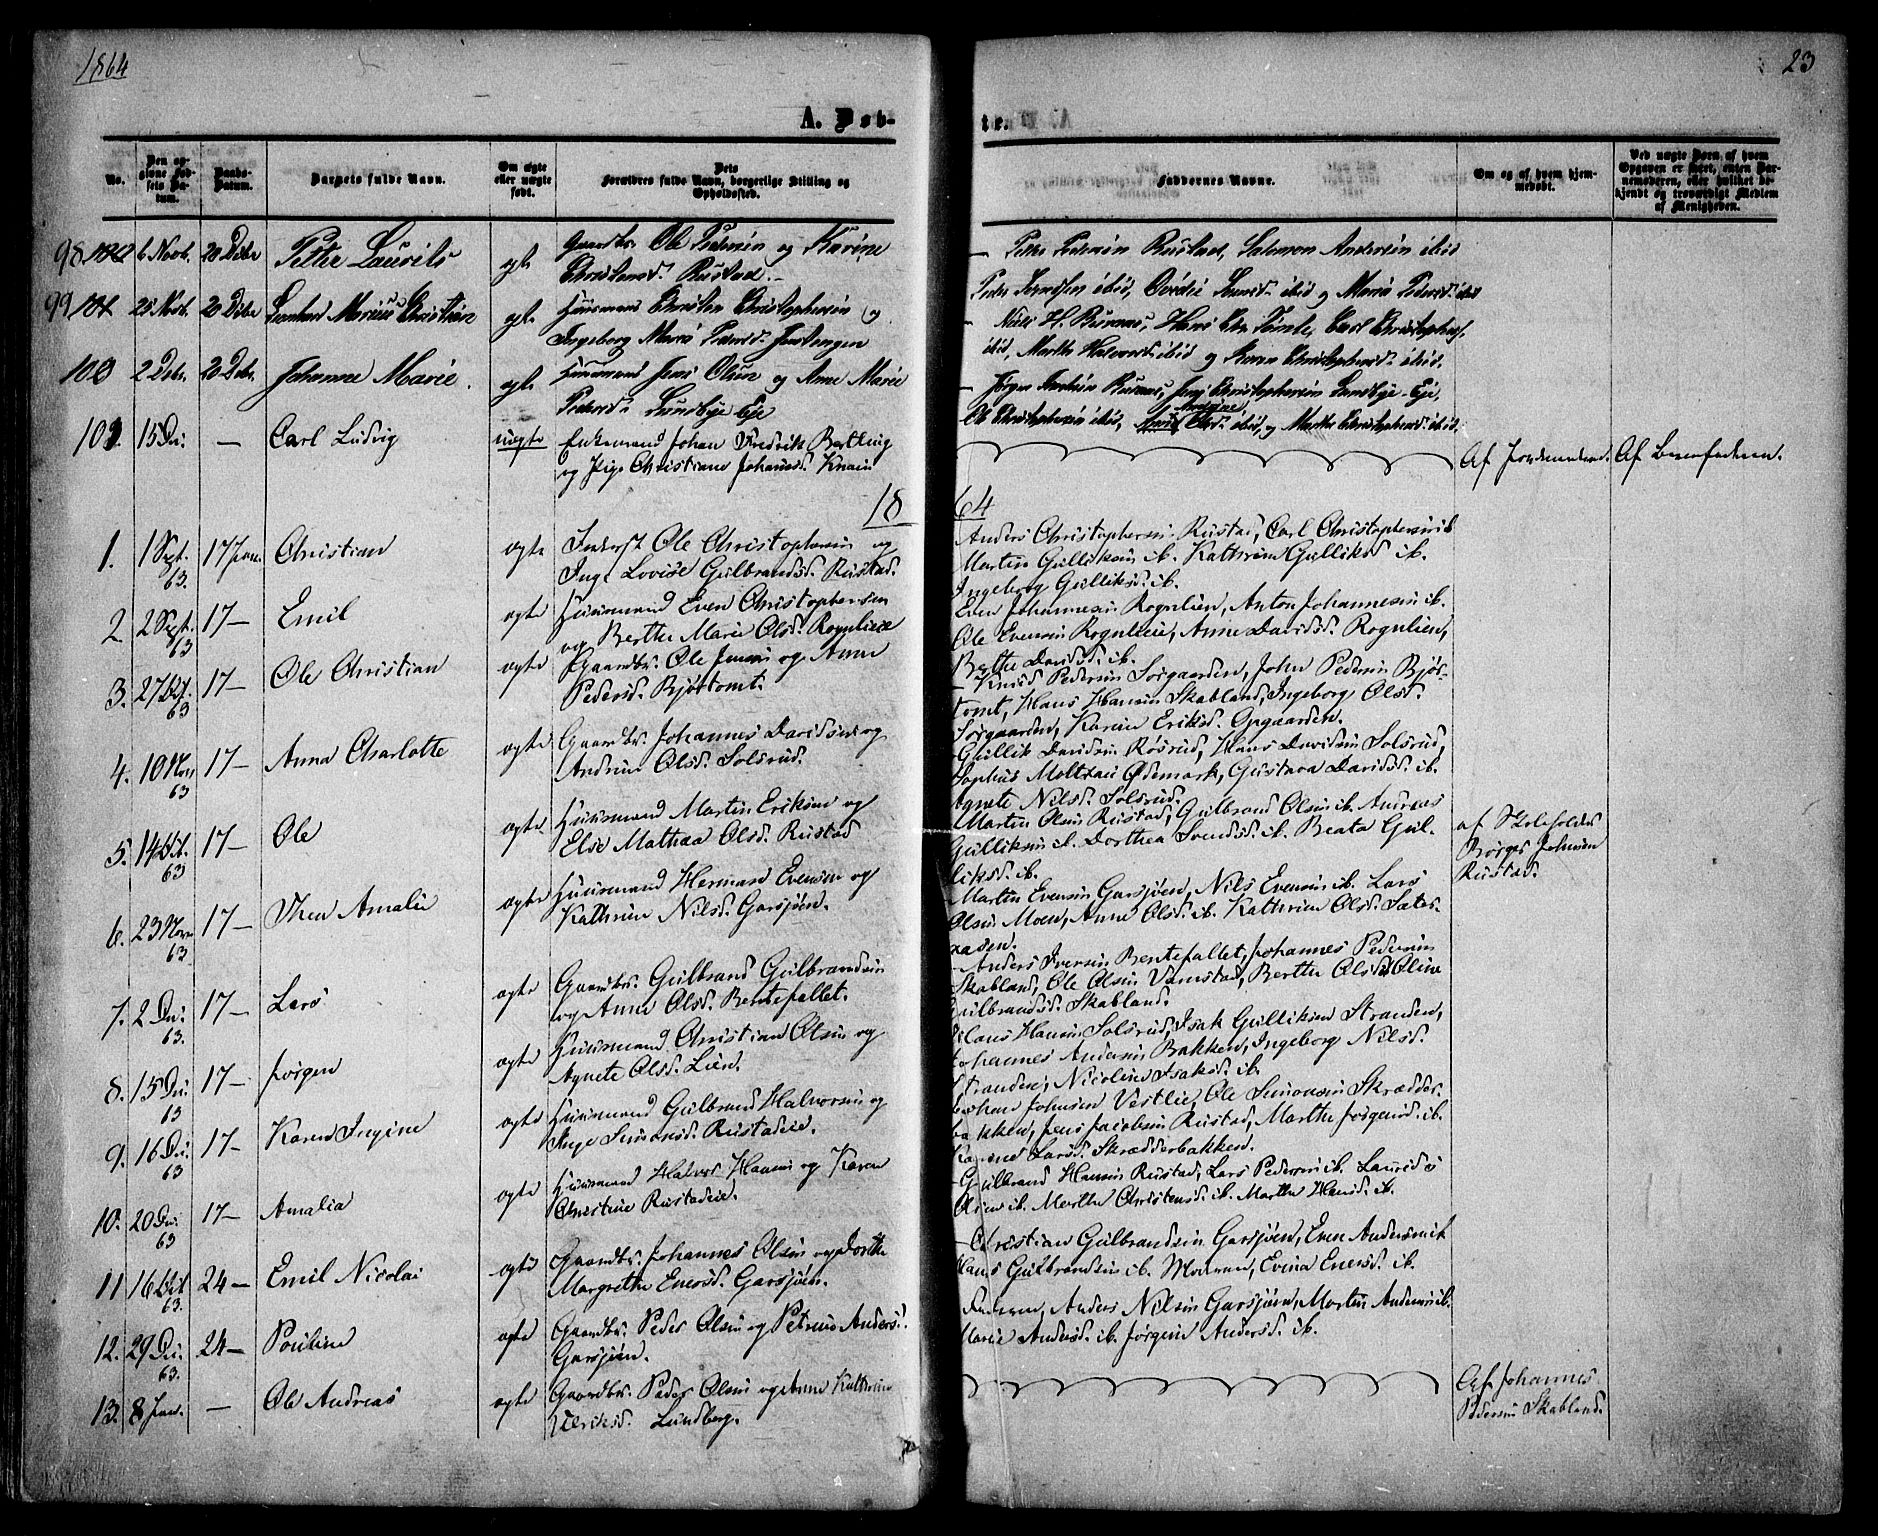 1864
23
A. Døb-
te.
No.
Den op-
givne Fød-
sels Da-
tum.
Daabs-
Datum.
Barnets fulde Navn.
Om ægte
eller uægte
født.
Dets
Forældres fulde Navn, borgerlige Stilling og
Opholdssted.
Faddernes Navne.
Om og af hvem hjem-
medøbt.
Ved uægte Børn, af hvem
Opgaven er skeet, enten Bar-
nemoderen, eller hvilket be-
kjendt og troværdigt Medlem
af Menigheden.
98 6 Novb. 20 Dcbr Peter Laurits ægte Gaardbr. Ole Pedersen og Karine
Christensd. Rustad.
— Peter Pedersen Rustad, Salomon Andersen ibid
Peder ibid, ibid og Maria Pedersd. ibid
99 25 Novb. 20 Dcbr Marius Christian ægte Huusmand Christen Christophersen og
Ingeborg Maria Pedersd.
— Niels H. Carl Christophers.
ibid, Marthe Halvorsd. ibid og Karen Christophersd. ibid.
100 2 Dcbr. 20 Dcbr. Johanne Marie. ægte Huusmand Jens Olsen og Anne Marie
Pedersd. Lundbye Eje
— Jørgen Jens Christophersen Lundbye Eje,
Ole Christophersen ibid, Olsd. ibid, og Marthe Christophersd. ibid.
101. 15 De: — Carl Ludvig uægte Enkemand Johan Fredrik Bertling
og Pige Christiane Johannesd.
Af Jordemoderen. Af Barnefaderen.
1864
1. 1 Sept. 63. 17 Jan. Christian ægte Inderst Ole Christophersen og
Inge Lovise Gulbrandsd. Rustad.
Anders Christophersen Rustad, Carl Christophersen ib
Martin Gulliksen ib. Kathrine Gulliksd ib.
Ingeborg Gulliksd. ib.
2. 2 Sept. 63 17— Emil ægte Huusmand Even Christophersen
og Berthe Marie Olsd. Rognlieie
Even Johannesen Rognlien, Anton Johannesen ib.
Ole Evensen Rognlieie, Anne Davidsd. Rognlien,
Berthe Davidsd. ib.
3. 27 63 17— Ole Christian ægte Gaardbr. Ole Jensen og Anne
Pedersd. Bjørtomt.
— Knud Pedersen Sørgaarden, John Pedersen Bjør-
tomt, Hans Hansen Skabland, Ingeborg Olsd.
Sørgaarden, Karine Eriksd. Opgaarden.
4. 10 Nov 63 17— Anna Charlotte ægte Gaardbr. Johannes Davidsen og
Andrine Olsd. Solsrud.
Gullik Davidsen Røsrud, Hans Davidsen Solsrud,
Sophus Moltzau Ødemark, Gustava Davidsd. ib.
Agnete Nilsd. Solsrud.
5. 14 63 17— Ole ægte Huusmand Martin Eriksen og
Else Mathea Olsd. Rustad
Martin Olsen Rustad, Gulbrand Olsen ib. Andreas
Gulliksen ib. Dorthea Svendsd. ib. Beata Gul-
liksd. ib.
af Skoleholder
Børger Johnsen
Rustad.
6. 23 Nov 63. 17— Thea Amalie ægte Huusmand Herman Evensen og
Kathrine Nilsd. Garsjøen.
Martin Evensen Garsjøen, Nils Evensen ib. Lars
Olsen Moen, Anne Olsd. ib. Kathrine Olsd. Sæter-
aasen.
7. 2 De: 63. 17— Lars ægte Gaardbr. Gulbrand Gulbrandsen
og Anne Olsd. Bentefallet.
— Anders Iversen Bentefallet, Johannes Pedersen
Skabland, Ole Olsen Vamstad, Berthe Olsd. Oline
Gulbrandsd. Skabland.
8. 15 De: 63 17— Jørgen ægte Huusmand Christian Olsen og
Agnete Olsd. Lien.
Hans Hansen Solsrud, Isak Gulliksen Stranden,
Johannes Andersen Bakken, Ingeborg Nilsd.
Stranden, Nicoline Isaksd. ib.
9. 16 De: 63 17— Karen Ingine ægte Huusmand Gulbrand Halvorsen og
Inge Simonsd. Rustadeie.
Johnsen Vestlie, Ole Simonsen Skrædder-
bakken, Jens Jacobsen Rustad, Marthe Jørgensd. ib.
Larsd. Skrædderbakken.
10. 20 De: 63 17— Amalia ægte Huusmand Halvor Hansen og Karen
Christine Rustadeie.
— Gulbrand Hansen Rustad, Lars Pedersen ib. Laurids
Olsen ib. Marthe Christensd. ib. Marthe Hansd. ib.
11 16 63. 24— Emil Nicolai ægte Gaardbr. Johannes Olsen og Dorthe
Margrethe Enersd. Garsjøen.
— Christian Gulbrandsen Garsjøen, Even Andersen ib
Hans Gulbrandsen ib. Moderen, Evina Enersd. ib.
12. 29 De: 63. 24— Pouline ægte Gaardbr. Peder Olsen og Petrine Andersd.
Garsjøen.
Faderen, Anders Nilsen Garsjøen, Martin Andersen ib.
Marie Andersd. ib. Jørgine Andersd. ib.
13. 8 Jan. — Ole Andreas ægte Gaardbr. Peder Olsen og Anne Kathrine
Ulriksd. Lundberg.
Af Johannes
Pedersen Skabland.